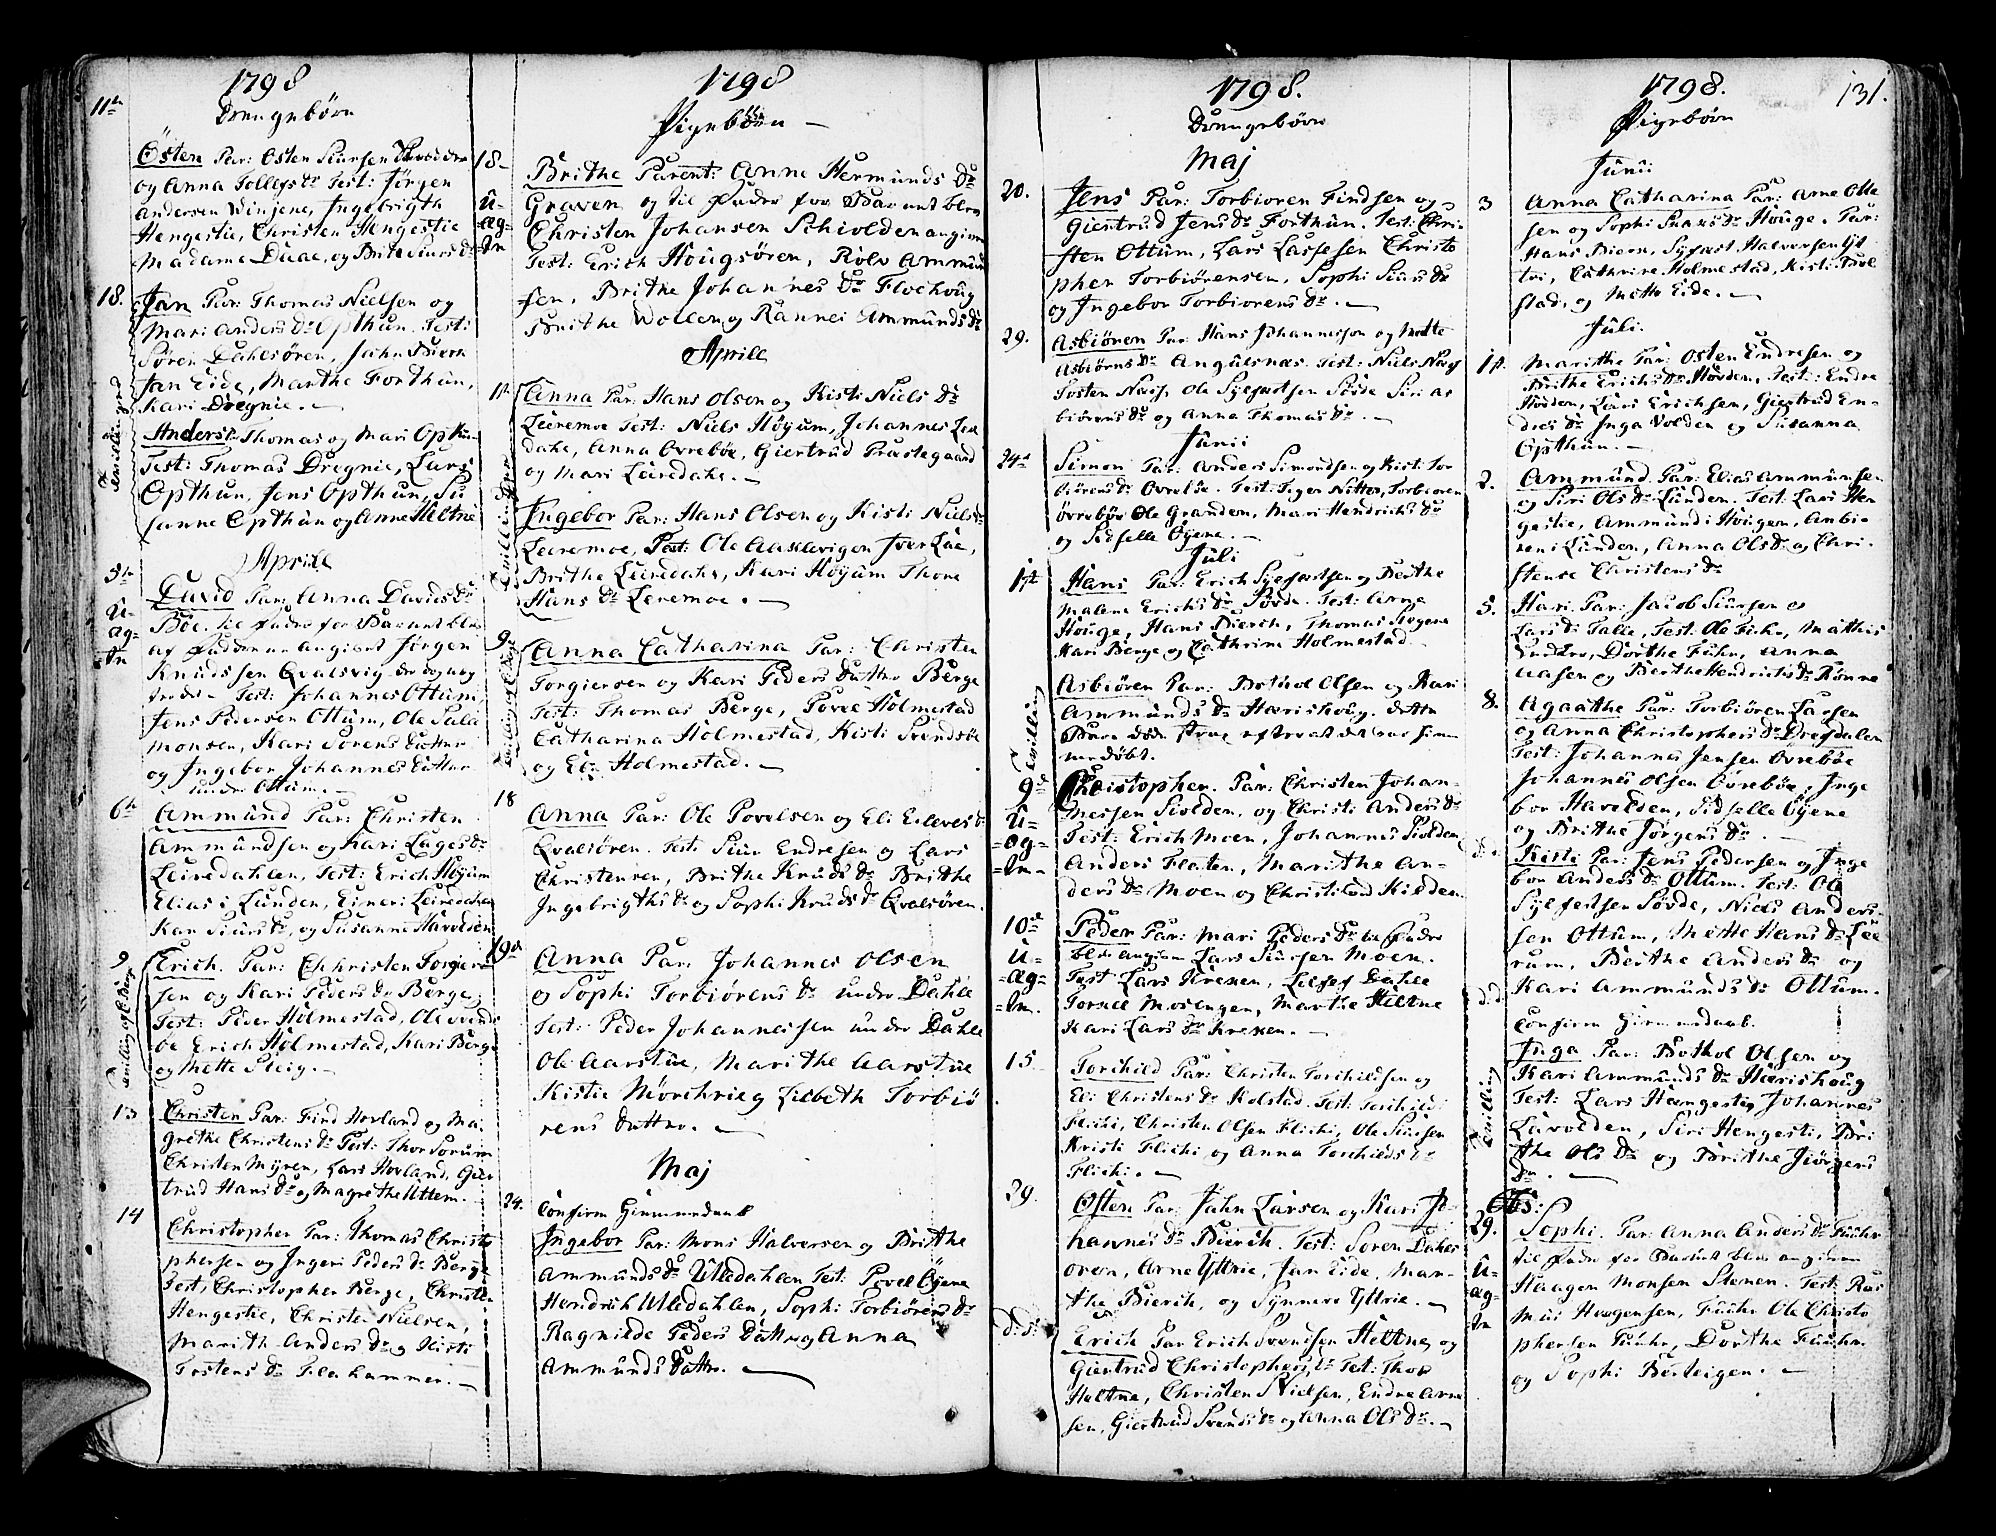 1798
Drengebörn
11te
Östen Par: Osten Siursen
og Anna Tollefs Dr Test: Jørgen
Andersen Winjene, Ingebrigth
Hengestie, Christen Hengestie
Madame Daae, og Brite Siurs Dr
18. Jan Par: Thomas Nielsen og
Mari Anders Dr Opthun. Test:
Sören Dahlsören, John Bierk
Jan Eide, Marthe Forthun,
Kari Dregnie. —
Anders Thomas og Mari Opthun
Test: Thomas Dregnie, Lars
Opthun, Jens Opthun, Su
sanne Opthun og Anne Heltne
Aprill
5te David Par: Anna Davids Dr
U= Böe. til Fader for Barnet blev
æg= af Faderen angivet Jørgen
tn Knudssen Qvalsvig
Test: Johannes Ottum,
Jens Pedersen Ottum, Ole Sala
monsen, Kari Sørens Datter
og Ingebor Johannes Datter
Ottum. —
6te Ammund Par: Christen
Ammundsen og Kari Lages Dr
Leiredahlen, Test: Erich Höyum
Elias i Lunden, Einer i Leiredahlen
Kari Siurs Dr, og Susanne Havolden
9 Erich. Par: Christen Torgier
sen og Kari Peders Dr Berge,
Test: Peder Holmestad, Ole Svends
öe Erich Holmestad, Kari Berge
og Mette Steig. —
13 Christen Par: Find Hovland og Ma
grethe Christens Dr Test: Thor Sorum
Christen Myren, Lars Hovland, Gier
trud Hans Dr og Magrethe Uttem. —
14
Christopher Par: Thomas Christo
phersen og Ingeri Peders Dr Berge
Test, Christopher Berge, Christen
Hengestie, Christen Nielsen,
Marith Anders Dr og Kisti
Tostens Dr Flahammer. —
1798
Pigebörn —
18- Brithe Parent: Anne Hermunds Dr
U= Graven og til Fader for Barnet blev
æg= Christen Johansen Schiolden angiven
tn Test: Erich Hougsören, Rolv Ammun
sen, Brithe Johannes Dr Flochoug
Brithe Wollen og Rannei Ammunds Dr
Aprill
1te Anna Par: Hans Olsen og Kisti Niels Dr
Leiremoe Test: Niels Höyum, Johannes Lei
dahl, Anna Ovreböe, Giertrud Prestegaard
og Mari Leiredahl. —
Ingebor Par: Hans Olsen og Kisti Niels Dr
Leiremoe, Test: Ole Aasklevigen Iver Lie,
Brithe Leiredahl, Kari Höyum Thore
Hans Dr Leiremoe. —
9. Anna Catharina Par: Christen
Torgiersen og Kari Peders Datter Berge
Test: Thomas Berge, Povel Holmestad
Catharina Holmestad, Kisti Svendsöe
og Holmestad. —
18
Anna Par: Ole Povelsen og Eli Eilevs Dr
Qvalsören. Test: Siur Endresen og Lars
Christensen, Brithe Knuds Dr Brithe
Ingebrigths Dr og Sophi Knuds Dr Qvalsören.
19de Anna Par: Johannes Olsen
og Sophi Torbiörens Dr under Dahle
Test: Peder Johannessen under Dahle
Ole Aarstue, Marithe Aarstue
Kistie Mörchrie og Lisbeth Torbiö
rens datter. —
Maj
24. Confirm Hiemmedaab
Ingebor Par: Mons Halversen og Brithe
Ammunds Dr Ulledahlen Test: Povel Öyene
Hendrich Ulledahlen, Sophi Torbiörens Dr
Ragnilde Peders Datter og Anna
Ammunds Datter. —
1798.
Drengebörn
Maj
20. Jens Par: Torbioren Findsen og
Giertrud Jens Dr Forthun. Test: Chri-
sten Ottum, Lars Lassesen Christo
pher Torbiörensen, Sophi Siurs Dr
og Ingebor Torbiorens Dr. —
29. Asbiören Par: Hans Johannessen og Mette
Asbiörns Dr Angulsnæs. Test: Niels Næss
Tosten Næss, Ole Sylfestsen Söde Siri As
biörens Dr og Anna Thomas Dr. —
Junii
24de Simon Par: Anders Simondsen og Kisti Tor
biörens Dr Ovreböe. Test: Inger Nitter, Torbioren
Övreböe Ole Granden, Mari Hendrichs Dr
og Sidselle Öyene. —
Juli
1te Hans Par: Erich Sylfestsen og Berthe
Malene Erichs Dr Söde. Test: Arne
Houge, Hans Bierch, Thomas Hogene
Kari Berge og Cathrine Holmestad
Asbiören Par: Bothol Olsen og Kari
Ammunds Dr Hæreshoug. dette
Barn döde strax efter at det var hiem
medöbt.
9de Christopher. Par: Christen Johan-
U= nessen Sivolden, og Christi Anders Dr
=æg= Test: Erich Moen, Johannes Sivolden
=tn- Anders Flaten, Marithe An-
ders Dr Moen og Christi Lund Kilden
10de Peder Par: Mari Peders Dr til Fader
U= blev angiven Lars Siursen Moen.
=æg= Test Lars Krexen, Lilles Dahle
=tn. Tomas Mosengen, Marthe Heltne
Kari Lars Dr Krexen. —
15 Torchild Par: Christen Torchildsen og
Eli Christens Dr Kolstad. Test: Torchild
Flichi, Christen Olsen Flichi, Ole Siursen
Kristi Flichi og Anna Torchilds Dr
Flichi. —
29. Östen Par: John Larsen og Kari Jo-
hannes Dr Bierck. Test: Soren Dahls
oren, Arne Yttrie, Jan Eide, Mar-
the Bierck, og Synneve Yttrie. —
d: d: Erich Par Erich Svendsen Heltne og
Giertrud Christophers Dr Test: Thor
Heltne, Christen Nielsen, Endre Arne
sen, Giertrud Svends Dr og Anna Ols Dr. —
1798. 131.
Pigebörn
Junii
3 Anna Catharina Par: Arne Olle
sen og Sophi Dr Houge. Par:
Hans Bierk, Sylfest Halversen Yt
tri, Cathrine Holmestad, Kisti Bol
stad, og Mette Eide. —
Juli.
1te. Marithe Par: Osten Endresen og
Brithe Erichs Dr Hovden, Test: Endre
Hovden, Lars Erichsen, Giertrud En-
dres Dr Inga Volden og Susanna
Opthun. —
2. Ammund. Par: Elias Ammunsen
og Siri Ols Dr Lunden. Test: Lars Hen
gestie, Ammund i Hougen, Anbi-
ören i Lunden, Anna Ols Dr og Chri-
stense Christens Dr
5. Kari. Par: Jacob Siursen og
Lars Dr Talle, Test: Ole Fuhr, Mathis
Endre, Dorthe Fuhr, Anna
Aasen og Berthe Hendrichs Dr Rönne
8. Agaathe Par: Torbiören Larsen
og Anna Christophers Dr Dregsdalen
Test: Johannes Jensen Ovreböe
Johannes Olsen Övreböe, Inge
bor Havolden, Sidselle Öyene
og Brithe Jörgens Dr. —
d: d. Kisti Par: Jens Pedersen og Inge
bor Anders Dr Ottum. Test: Ole
Sylfestsen Sövde, Niels Anders-
sen Ottum, Mette Hans Dr Lee
rum, Berthe Anders Dr og
Kari Ammunds Dr Ottum.
d: d. Confirm Hiemmedaab.
Inga Par: Bothol Olsen og
Kari Ammunds Dr Hæreshoug
Test: Lars Hengestie, Johannes
Leivolden, Siri Hengesti, Bri
the Ols Dr og Brithe Jiörgens
Dr. —
29. Sophi. Par: Anna Anders Dr Fuuhr
til Fader for Barnet blev angiven
U= Haagen Monsen Stenen. Test: Ras
æg= mus Haagensen, Fuuhr Ole Christo
tn phersen Fuuhr, Dorthe Fuuhr
og Sophi Berteigen. —